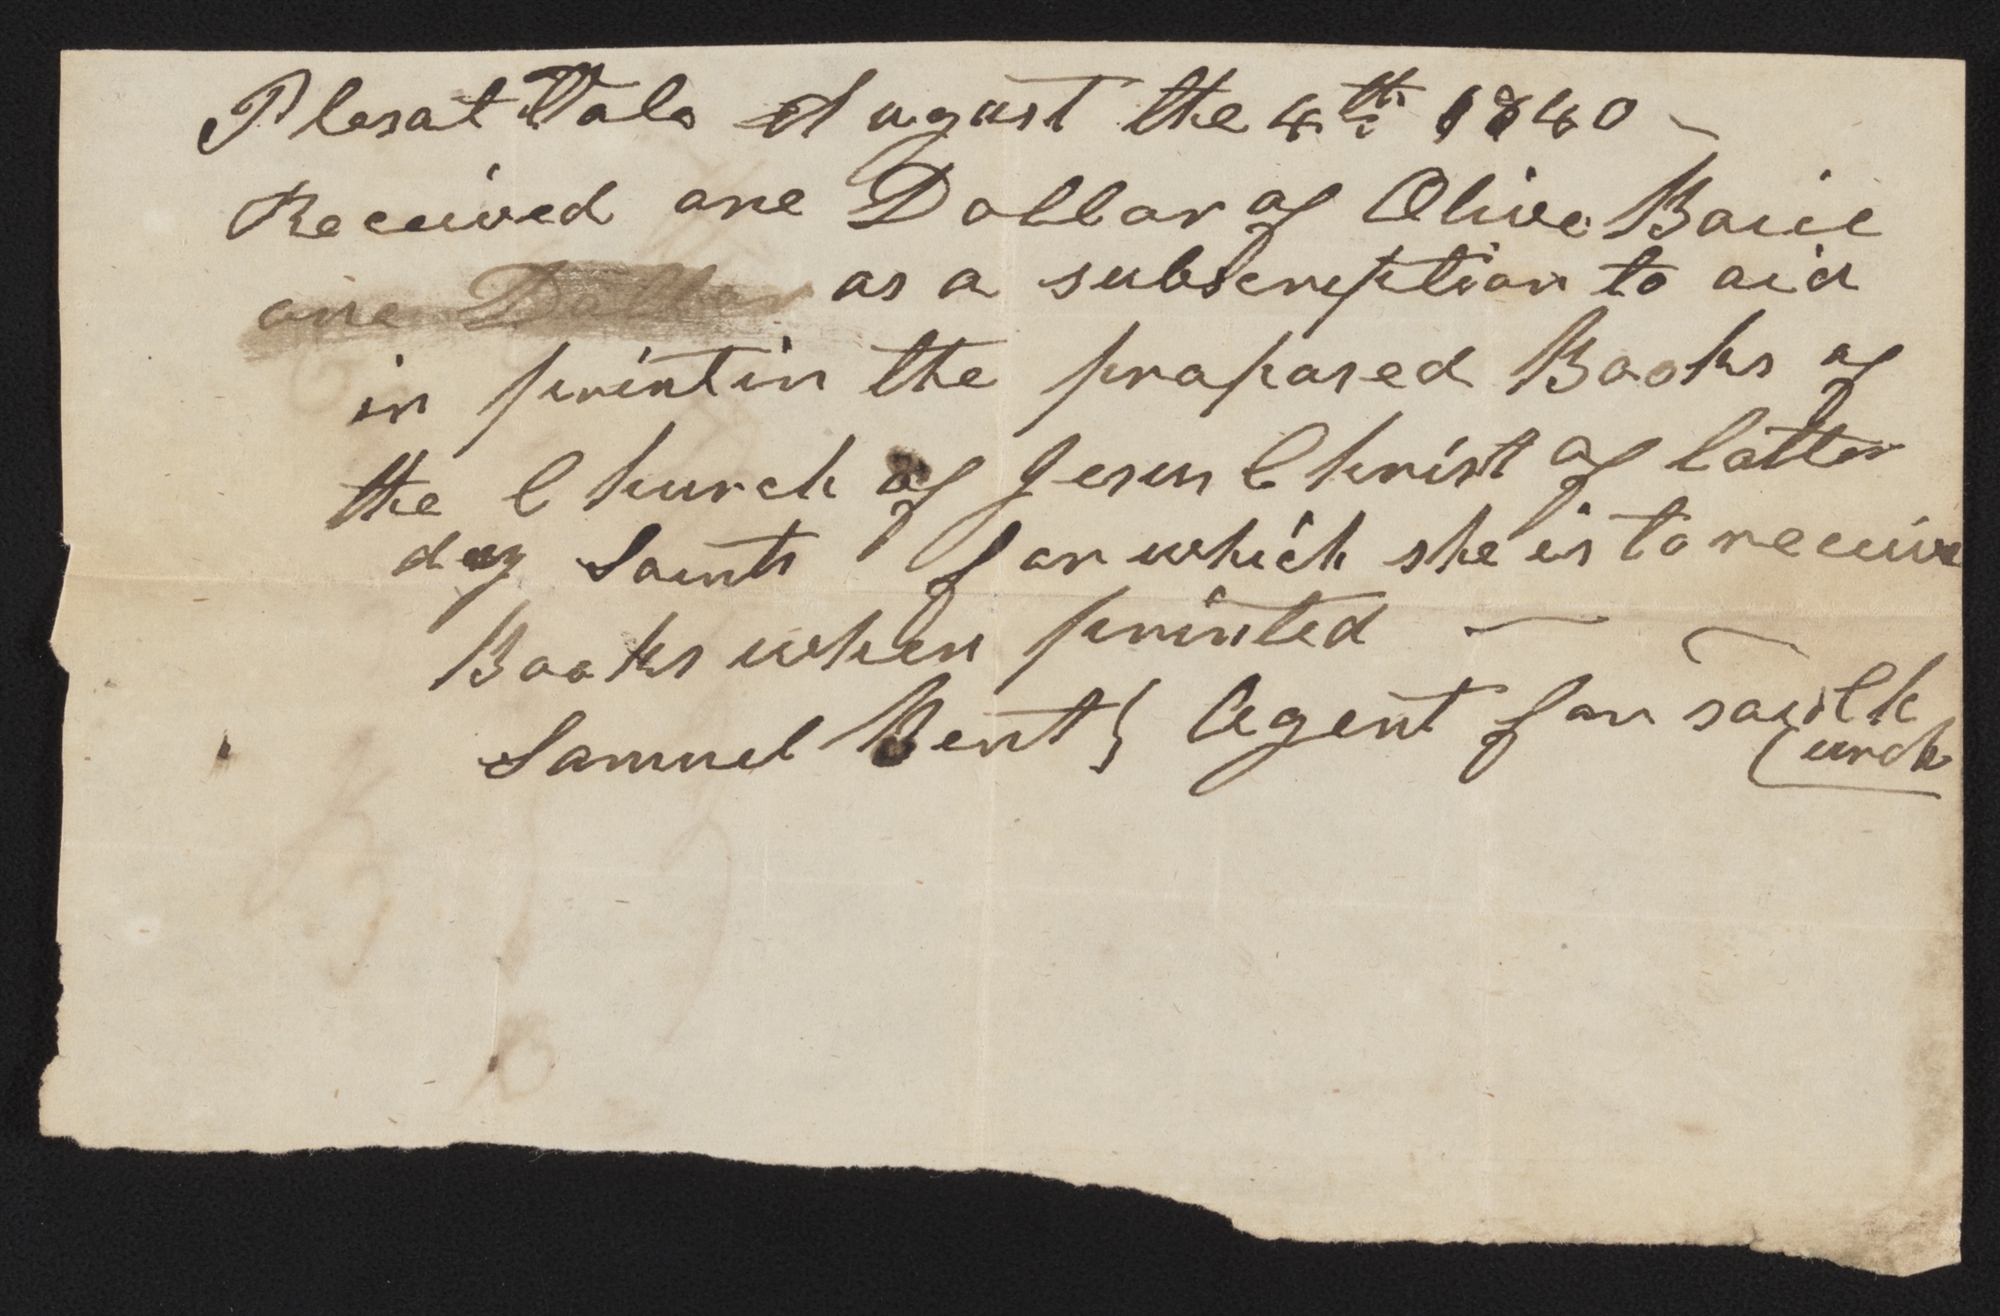 Plesat Vale August the 4th 1840
Received one Dollar of Olive Boice
one Dollar as a subscription to aid
in printin the proposed Books of
the Church of Jesus Christ of latter
day Saints for which she is to receive
Books when printed
Samuel Bent } Agent for said Ch
urch